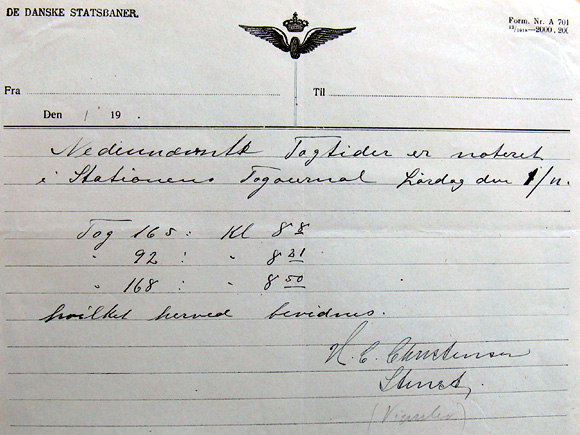 DE DANSKE STATSBANER.
Form. Nr. A 701
12/1918—2000. 200
Fra Til
Den / 19 .
Nedennævnte Togtider er noteret
i Stationens Togjournal Lørdag den 1/11.
Tog 165 : Kl 8 8
" 92 : " 8 31
" 168 : " 8 50
hvilket herved bevidnes.
H. C. Christensen